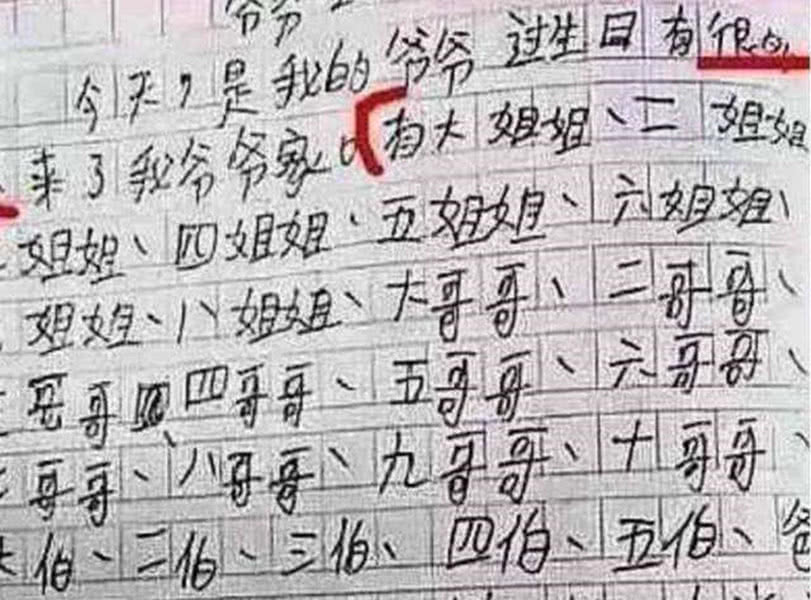 爷爷
今天,是我的爷爷过生日有很
来了我爷爷家。有大姐姐、二姐姐
姐姐、四姐姐、五姐姐、六姐姐、
姐姐、八姐姐、大哥哥、二哥哥、
哥哥 四哥哥、五哥哥、六哥哥、
哥哥、八哥哥、九哥哥、十哥哥、
伯、二伯、三伯、四伯、五伯、爸